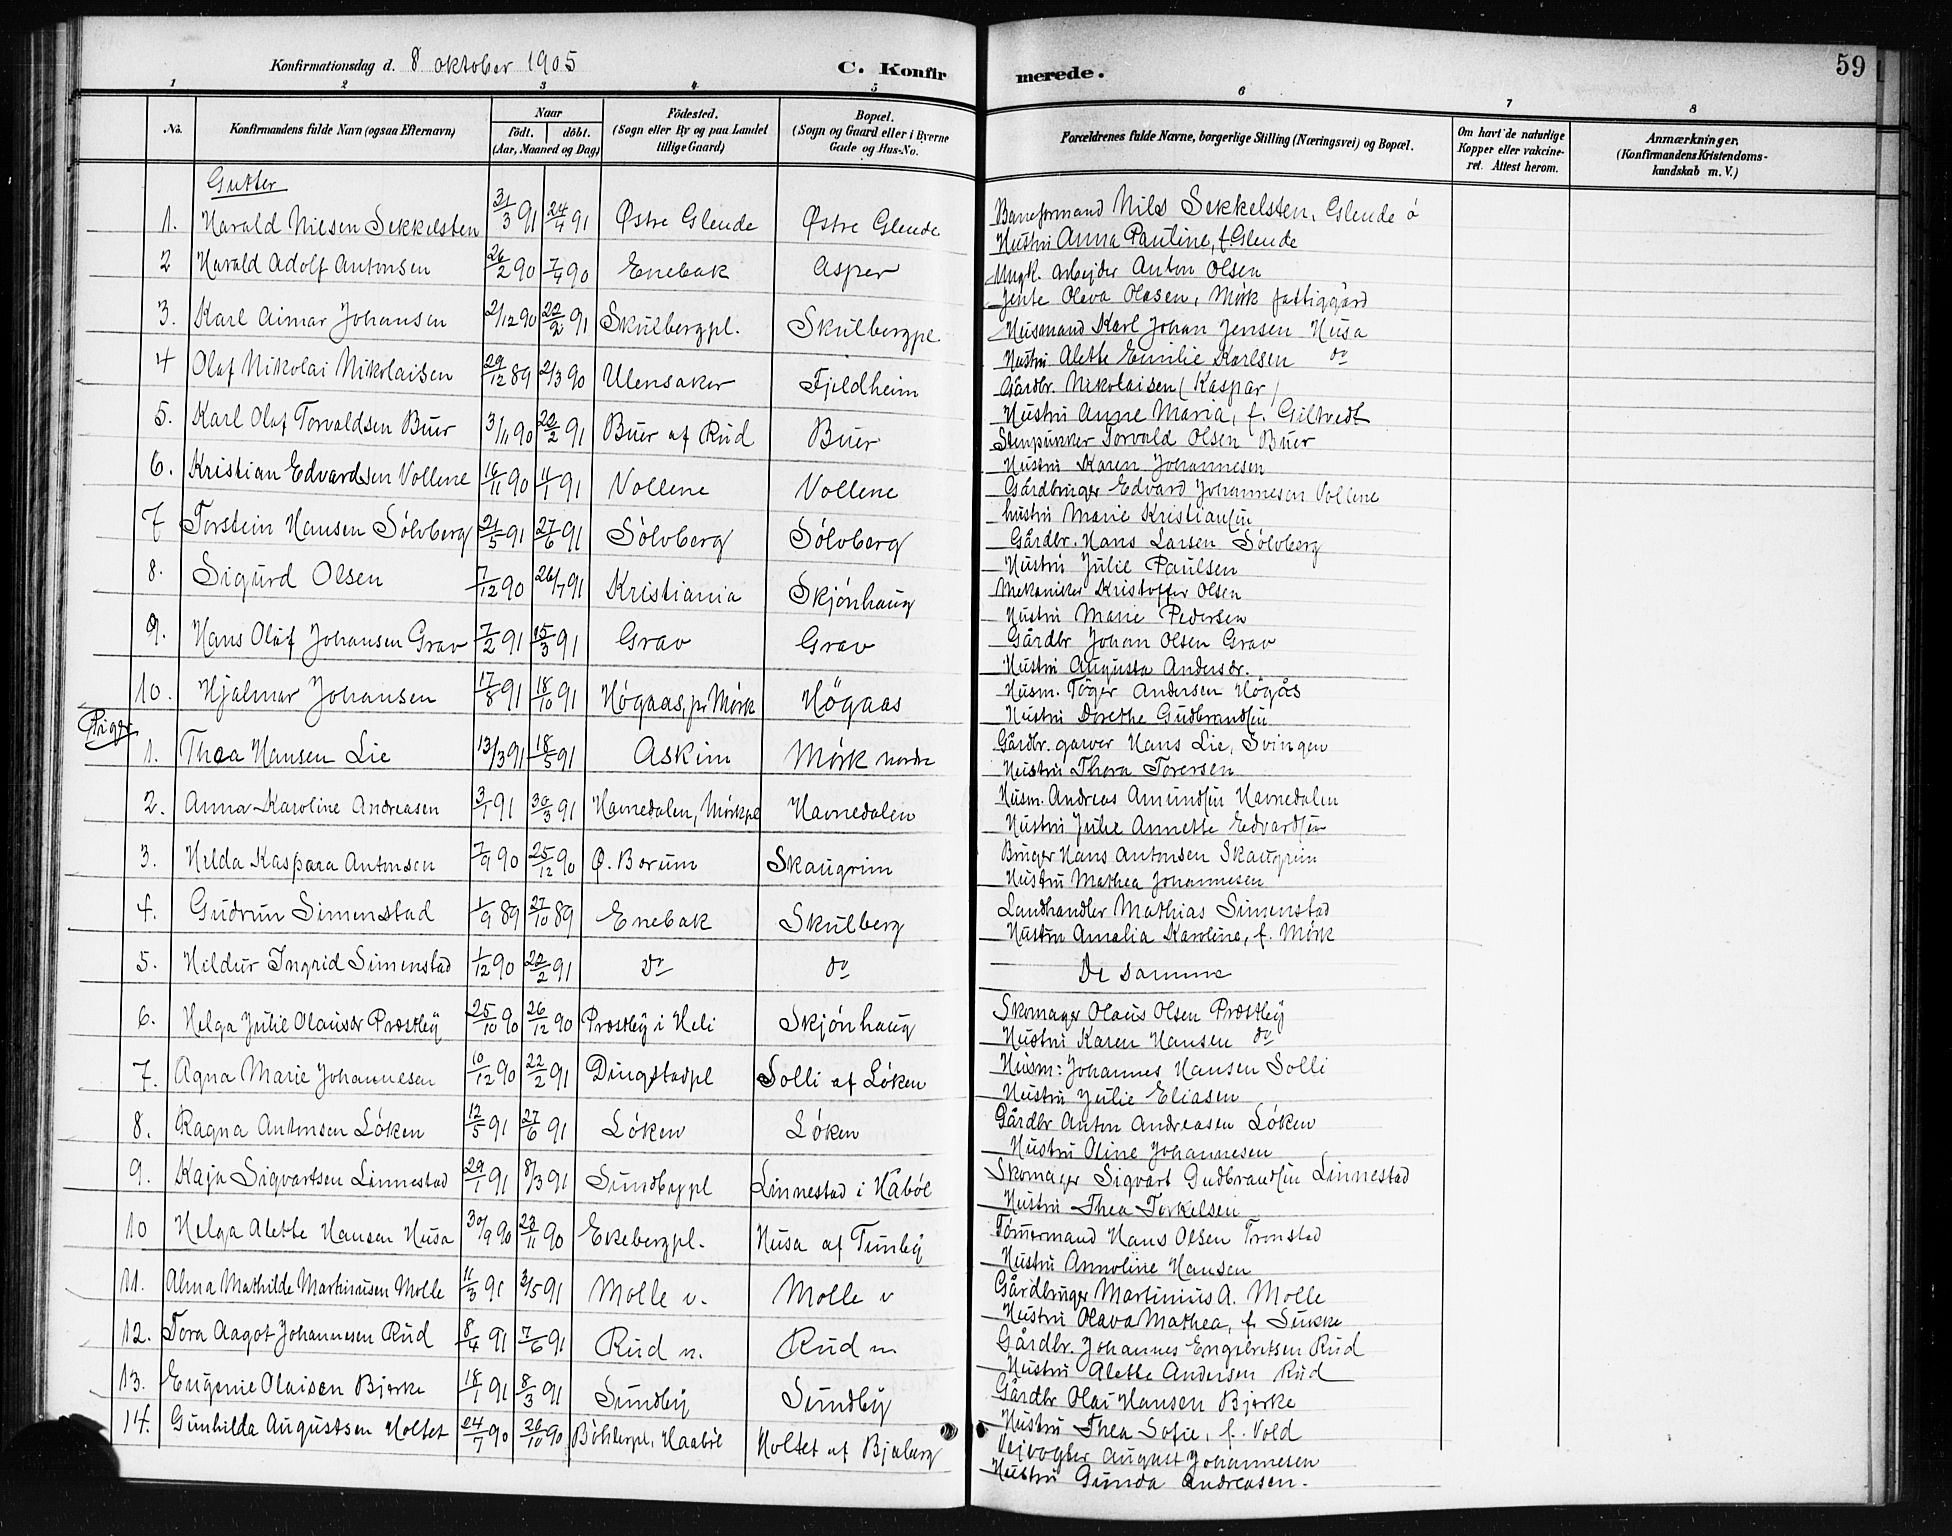 Konfirmationsdag d. 8 oktober 1905 C. Konfir
merede. 59
1 2 3 4 5
6 7 8
No. Konfirmandens fulde Navn (ogsaa Efternavn) Naar født. døbt. (Aar, Maaned og Dag) Fødested. (Sogn eller By og paa Landet tillige Gaard) Bopæl. (Sogn og Gaard eller i Byerne Gade og Hus-No.
Forældrenes fulde Navne, borgerlige Stilling (Næringsvei) og Bopæl. Om havt de naturlige Kopper eller vakcineret. Attest herom. Anmærkninger. (Konfirmandens Kristendomskundskab m. V.)
Gutter
1. Harald Nilsen Sekkelsten 31/3 91 24/4 91 Østre Glende Østre Glende
Baneformand Nils Sekkelsten, Glende ö
Hustru Anna Pauline, f. Glende
2 Harald Adolf Antonsen 26/2 90 7/4 90 Enebak Asper
Ungk. arbejder Anton Olsen
Jente Oleva Olasen, Mørk fattiggård
3. Karl Aimar Johansen 2/12 90 22/2 91 Skulbergpl. Skulbergpl.
Husmand Karl Johan Jensen Husa
Hustru Alette Emilie Karlsen do
4 Olaf Nikolai Nikolaisen 29/12 89 2/3 90 Ulensaker Fjeldheim
Gårdbr. Nikolaisen (Kaspar)
Hustru Anne Maria, f. Giltvedt
5. Karl Olaf Torvaldsen Buer 3/11 90 22/2 91 Buer af Rud Buer
Stenpukker Torvald Olsen Buer
Hustru Karen Johannesen
6. Kristian Edvardsen Vollene 16/11 90 11/1 91 Vollene Vollene
Gårdbruger Edvard Johannesen Vollene
hustru Marie Kristiansen
7 Torstein Hansen Sølvberg 21/5 91 27/6 91 Sølvberg Sølvberg
Gårdbr. Hans Larsen Sølvberg
Hustru Julie Paulsen
8. Sigurd Olsen 7/12 90 26/7 91 Kristiania Skjønhaug
Mekaniker Kristoffer Olsen
Hustru Marie Pedersen
9. Hans Olaf Johansen Grav 7/2 91 15/3 91 Grav Grav
Gårdbr Johan Olsen Grav
Hustru Augusta Andersdr.
10. Hjalmar Johansen 17/8 91 18/10 91 Høgaas, pr Mørk Høgaas
Husm. Töger Andersen Högås
Hustru Dorethe Gudbrandsen
Piger
1. Thea Hansen Lie 13/3 91 18/5 91 Askim Mørk nordre
Gårdbr. garver Hans Lie, Svingen
Hustru Thora Torersen
2. Anna Karoline Andreasen 3/1 91 30/3 91 Havnedalen, Mørkpl Havnedalen
Husm. Andreas Amundsen Havnedalen
Hustru Julie Annette Edvardsen
3. Helda Kaspara Antonsen 7/9 90 25/12 90 Ø. Borum Skaugrim
Bruger Hans Antonsen Skaugrim
Hustru Mathea Johannesen
4. Gudrun Simenstad 1/9 89 27/10 89 Enebak Skulberg
Landhandler Mathias Simenstad
Hustru Amalia Karoline, f. Mørk
5. Hildur Ingrid Simenstad 1/12 90 22/2 91 do do
De samme
6. Helga Julie Olausdr Præstby 25/10 90 26/12 90 Præstby i Heli Skjønhaug
Skomager Olaus Olsen Præstby
Hustru Karen Hansen do
7. Agna Marie Johannesen 10/12 90 22/2 91 Dingstadpl Solli af Løken
Husm: Johannes Hansen Solli
Hustru Julie Eliasen
8. Ragna Antonsen Løken 12/5 91 27/6 91 Løken Løken
Gårdbr Anton Andreasen Løken
Hustru Oline Johannesen
9. Kaja Sigvartsen Linnestad 29/1 91 8/3 91 Sundbypl Linnestad i Håbøl
Skomager Sigvart Gudbrandsen Linnestad
Hustru Thea Torkelsen
10 Helga Alette Hansen Husa 30/9 90 23/11 90 Ekebergpl. Husa af Tunby
Tømermand Hans Olsen Tronstad
Hustru Annoline Hansen
11. Alma Mathilde Martinusen Molle 11/3 91 3/5 91 Molle v. Molle v
Gårdbruger Martinius A. Molle
Hustru Olava Mathea, f.
12. Tora Aagot Johannesen Rud 8/4 91 7/6 91 Rud n. Rud n
Gårdbr. Johannes Engebretsen Rud
Hustru Alette Andersen Rud
13. Eugenie Olaisen Bjerke 18/1 91 8/3 91 Sundby Sundby
Gårdbr Olai Hansen Bjerke
Hustru Thea Sofie, f. Vold
14. Gunhilda Augustsen Holtet 24/7 90 26/10 90 Haabøl Holtet af Bjaberg
Vejvogter August Johannesen
Hustru Gunda Andreasen.